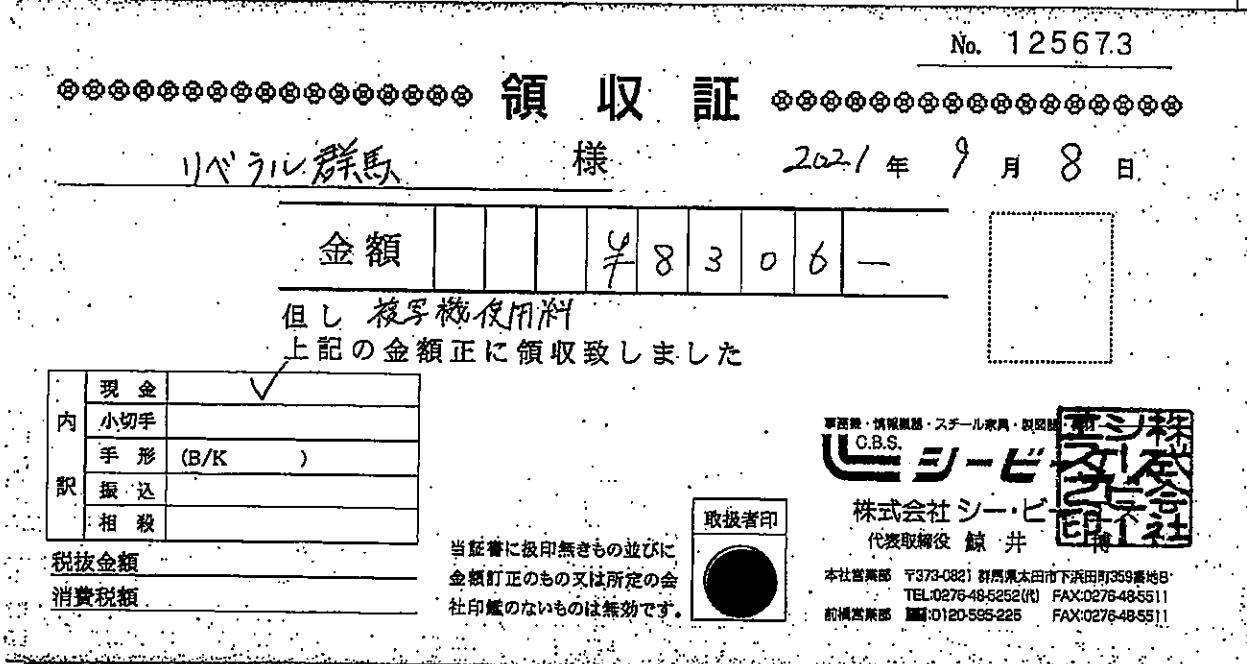 No. 125673
領収証
リベラル群馬 様 2021年 9月 8日
金額 ¥8306―
但し 複写機使用料
上記の金額正に領収致しました
内訳
現金 ✓
小切手
手形 (B/K )
振込
相殺
税抜金額
消費税額
当証書に扱印無きもの並びに
金額訂正のもの又は所定の会
社印鑑のないものは無効です。
取扱者印
事務機・情報機器・スチール家具・製図機
C.B.S.
シービー
株式会社 シー・ビー・エス
代表取締役 鯨井 博
株式会社シービーエス
本社営業部 〒373-0821 群馬県太田市下浜田町359番地8
TEL:0276-48-5252(代) FAX:0276-48-5511
前橋営業部 :0120-595-226 FAX:0276-48-5511